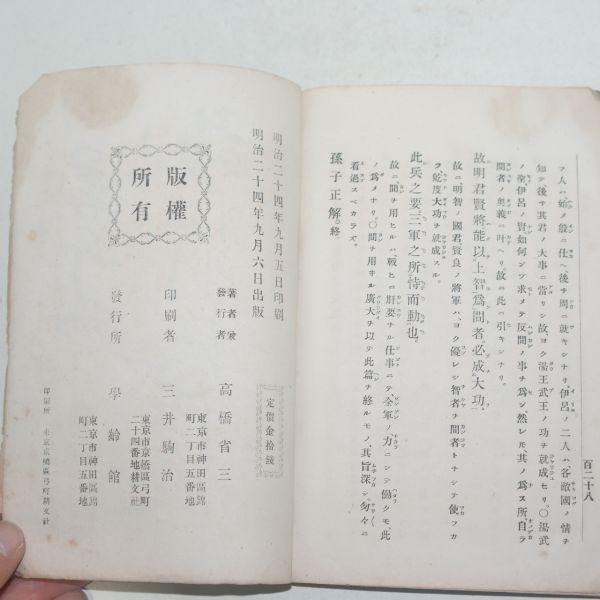 百二十八
フ人ハ始メ殷ニ仕ヘ、後チ周ニ就キシナリ。伊呂ノ二人ハ各敵國ノ情ヲ
知テ後チ其君ノ大事ニ當リシ故ヨク湯王武王ノ功ヲ就成セリ。〇湯武
ノ聖伊呂ノ賢如何ンゾ求メテ反間ノ事ヲ爲ン、然レ𪜈其ノ爲ス所自ラ
間者ノ奥義ニ叶ヘリ、故ニ此ニ引キシナリ。
故明君賢將能以上智爲間者必成大功、
故ニ明智ノ國君賢良ノ將軍ハ、ヨク優レシ智者ヲ間者トナシテ使フカ
ラ、屹度大功ヲ就成スル。
此兵之要三軍之所恃而動也。
故ニ間ヲ用ヒルハ、戰ヒニ肝要ナル仕事ニテ全軍ノ力ニシテ働クモ、此
ノ爲メナリ。〇間ヲ用ヰル廣大ヲ以テ此篇ヲ終ルモノ、其旨深シ、匆々ニ
看過スベカラズ。
孫子正解。終
明治二十四年九月五日印刷
明治二十四年九月六日出版
定價金拾錢
版權所有
著者兼發行者 高橋省三
東京市神田區錦町二丁目五番地
印刷者 三井駒治
東京市京橋區弓町二十四番地耕文社
發行所 學齡館
東京市神田區錦町二丁目五番地
印刷所 東京京橋區弓町耕文社